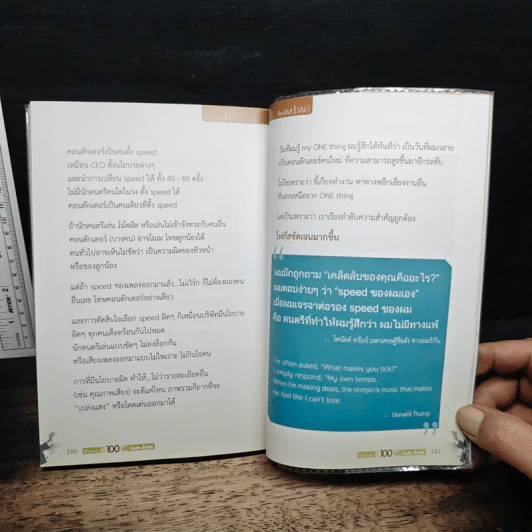 คอนดักเตอร์เป็นคนตั้ง speed
เหมือน CEO ตั้งนโยบายต่างๆ
และนำการเปลี่ยน speed ให้ ทั้ง 40 - 60 ครั้ง
ไม่มีนักดนตรีคนใดในวง ตั้ง speed ได้
คอนดักเตอร์เป็นคนเดียวที่ตั้ง speed
ถ้านักดนตรีเล่น โน้ตผิด หรือเล่นไม่เข้าจังหวะกับคนอื่น
คอนดักเตอร์ (บางคน) อาจโมเม โทษลูกน้องได้
คนทั่วไปอาจเห็นไม่ชัดว่า เป็นความผิดของหัวหน้า
หรือของลูกน้อง
แต่ถ้า speed ของเพลงออกมาแล้ว...ไม่เวิร์ก ก็ไม่ต้องมองคน
อื่นเลย โทษคอนดักเตอร์อย่างเดียว
และการตัดสินใจเลือก speed ผิดๆ ก็เหมือนบริษัทมีนโยบาย
ผิดๆ ทุกคนเดือดร้อนกันไปหมด
นักดนตรีเล่นแบบขัดๆ ไม่สอดคล้องกัน
หรือเสียงเพลงออกมาแบบไม่ไพเราะ ไม่กินใจคน
การที่มีนโยบายผิด ทำให้...ไม่ว่ารายละเอียดอื่น
(เช่น คุณภาพเสียง) จะดีแค่ไหน ภาพรวมก็ยากที่จะ
"เปล่งแสง" หรือโดดเด่นออกมาได้
180
100
วันที่ผมรู้ my ONE thing ผมรู้สึกได้ทันทีว่า เป็นวันที่ผมกลาย
เป็นคอนดักเตอร์คนใหม่ ที่ความสามารถสูงขึ้นมาอีกระดับ
ไม่ใช่เพราะว่า ขี้เกียจทำงาน หาทางหลีกเลี่ยงงานอื่น
ที่นอกเหนือจาก ONE thing
แต่เป็นเพราะว่า เราเรียงลำดับความสำคัญถูกต้อง
โฟกัสชัดเจนมากขึ้น
ผมมักถูกถาม "เคล็ดลับของคุณคืออะไร?"
ผมตอบง่ายๆ ว่า "speed ของผมเอง"
เมื่อผมเจรจาต่อรอง speed ของผม
คือ ดนตรีที่ทำให้ผมรู้สึกว่า ผมไม่มีทางแพ้
... โดนัลด์ ทรัมป์ มหาเศรษฐีชื่อดัง ชาวอเมริกัน
I'm often asked, "What makes you tick?"
I simply respond, "My own tempo.
When I'm making deals, the tempo is music that makes
me feel like I can't lose.
... Donald Trump
100
181